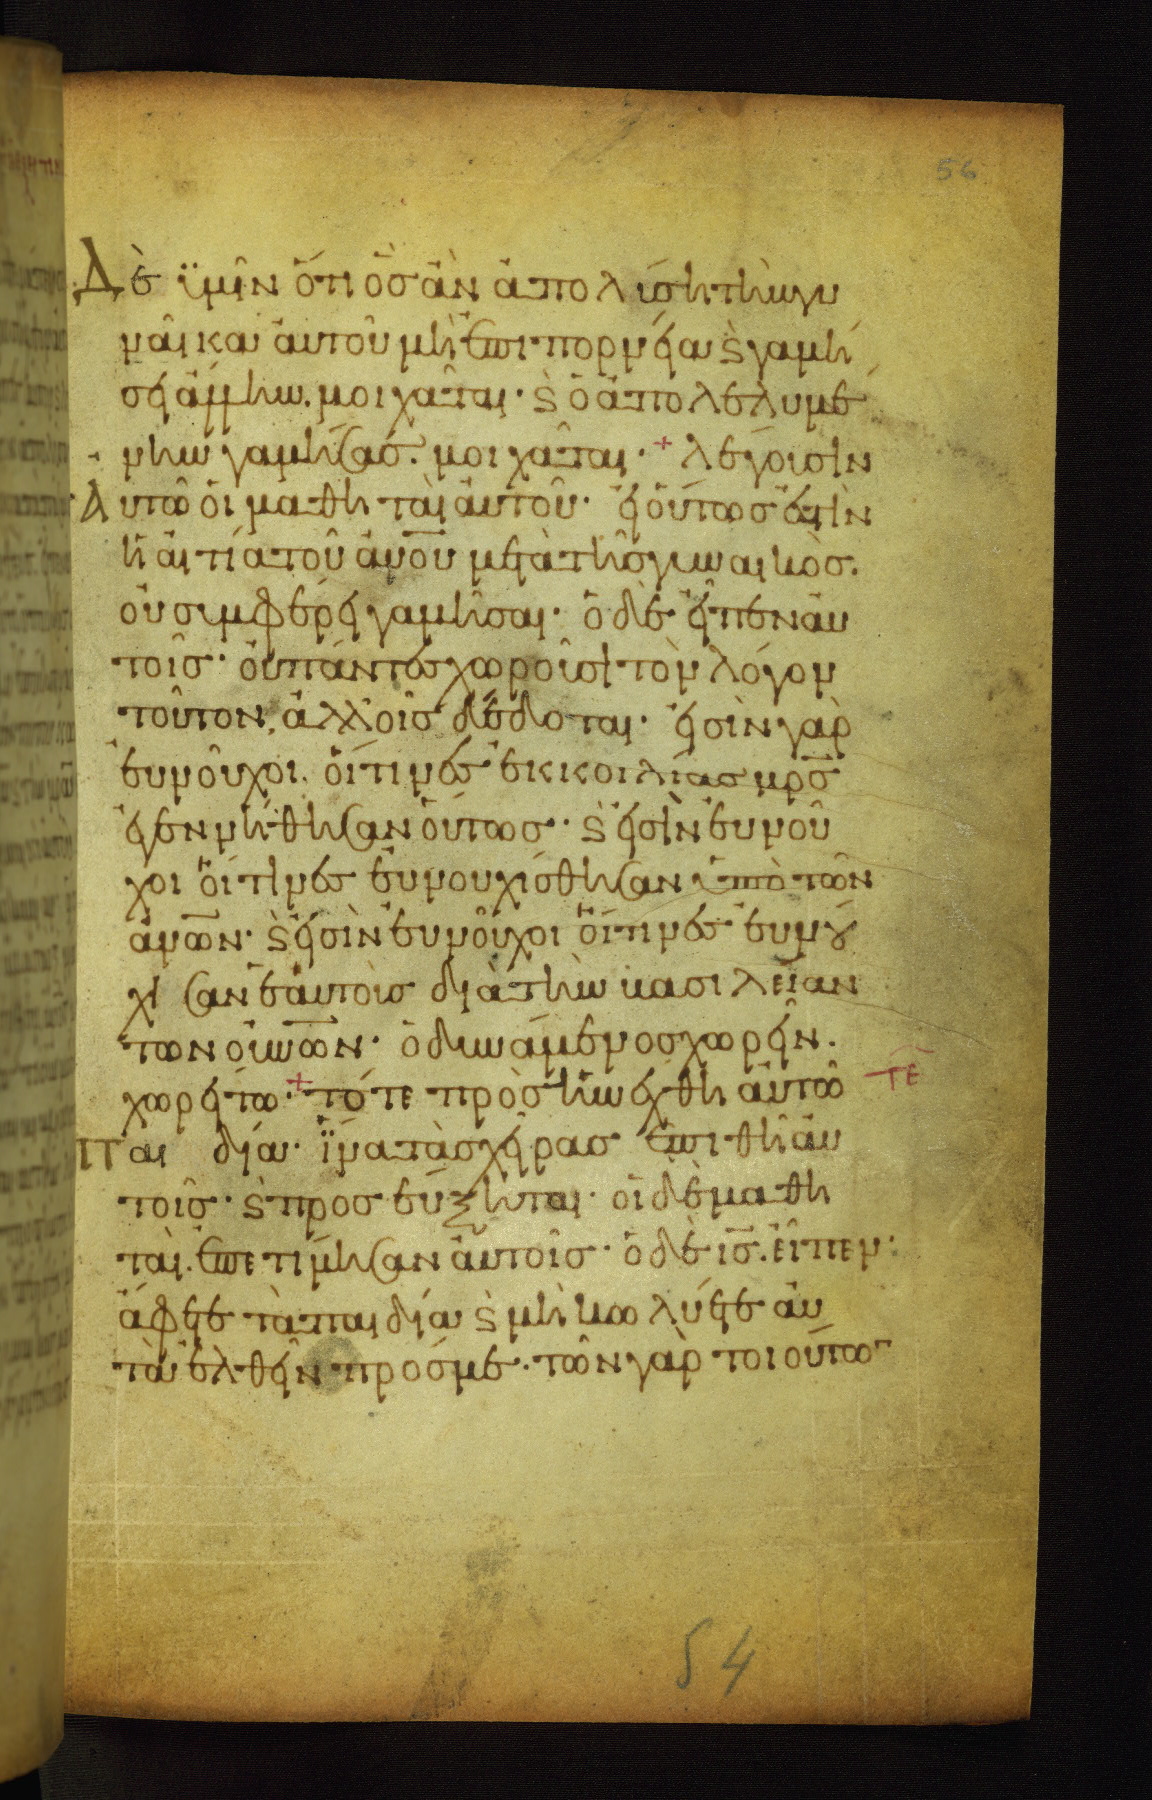 56
Δὲ ϋμῖν ὅτι ὃσ ἂν ἀπολύσῃ τὴν γυ
ναῖκαν ἀυτοῦ μὴ ἐπι πορνεία ϗ γαμή
σει ἄλλην. μοιχαται· ϗ ὁ ἀπολελυμέ
νην γαμήσας. μοιχαται· + λέγουσιν
Αυτῶ ὁι μαθηταὶ ἀυτοῦ· εἰ ὅυτωσ ἐστὶν
ἡ ἀιτία τοῦ ἀν̅ο̅υ μετὰ τῆσ γυναικὸσ.
ὀυ σιμφέρει γαμῆσαι· ὁ δὲ εἶπεν ἀυ
τοῖσ· ὀυ πάντεσ χωροῦσι τὸν λόγον
τοῦτον, ἀλλ' οἷσ δέδοται· ἐισὶν γὰρ
ἐυνοῦχοι. ὅιτινεσ ἐκ κοιλίασ μρ̅σ̅
ἐγεννήθησαν ὅυτωσ· ϗ ἐισὶν ἐυνοῦ
χοι ὅιτινεσ ἐυνουχίσθησαν ὑπὸ τῶν
ἀν̅ω̅ν· ϗ ἐισὶν ἐυνοῦχοι ὅιτινεσ ἐυνȣ́
χισαν ἑαυτοὶσ διὰ τὴν βασιλείαν
των ὀυν̅ω̅ν· ὁ δυνάμενοσ χωρεῖν.
χωρείτω· + τότε προσηνέχθη ἀυτῶ ΤΕ
Παιδία· ἵνα τὰσ χεῖρασ ἐπιθῆ ἀυ
τοῖσ· ϗ προσεύξηται· οἱ δὲ μαθη
ταὶ. ἐπετίμησαν ἀυτοῖσ· ὁ δὲ ι̅σ̅. εἶπεν·
ἄφετε τὰ παιδία ϗ μὴ κωλύετε ἀυ
τὰ ἐλθεῖν προσ με· τῶν γὰρ τοιούτω¯
54